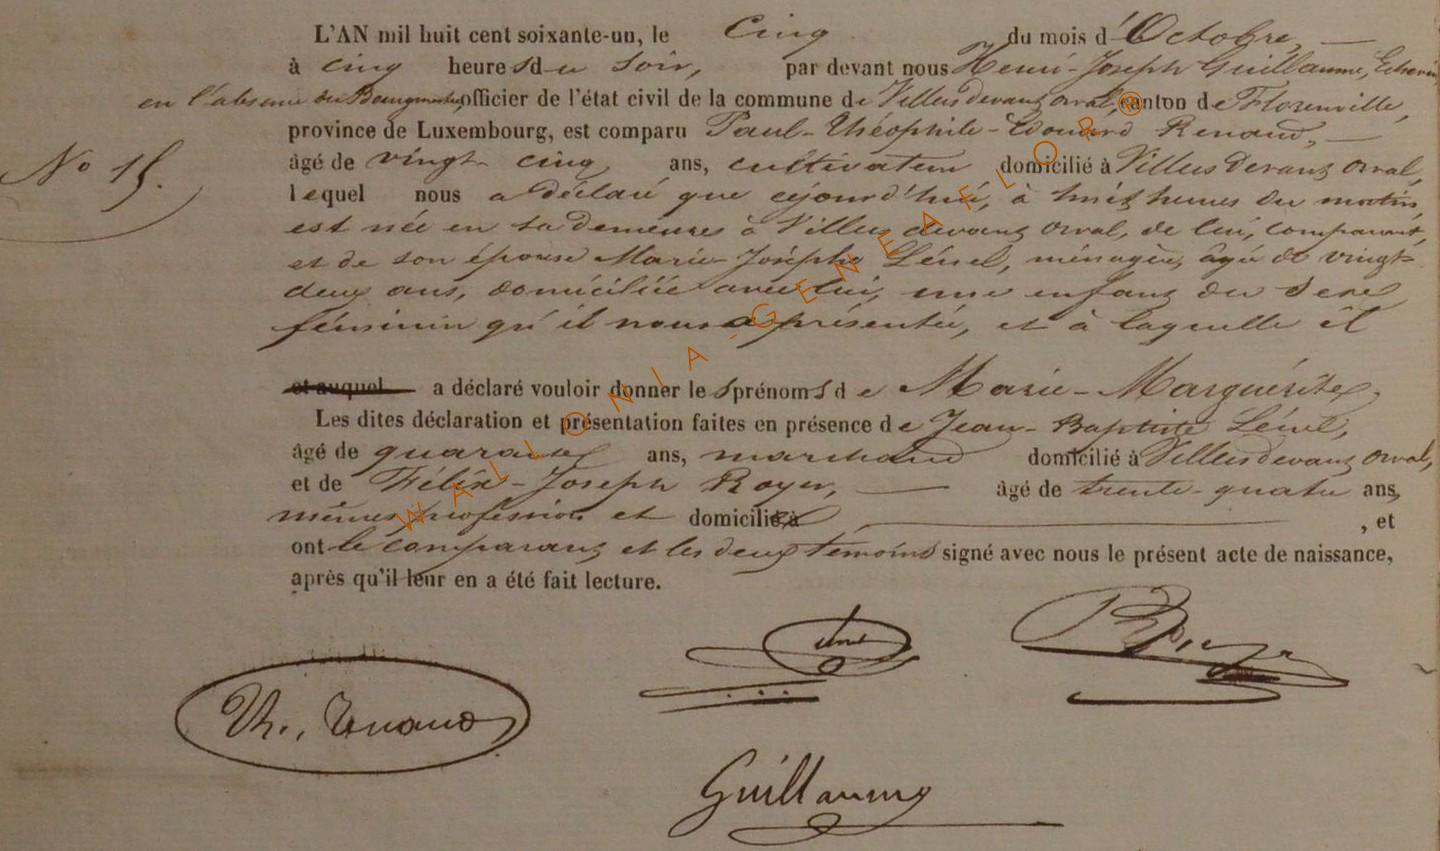 L'AN mil huit cent soixante-un, le Cinq du mois d'Octobre,
à cinq heures du soir, par devant nous Henri-Joseph Guillaume, Echevin
en l'absence du Bourgmestre, officier de l'état civil de la commune de Villers devant orval, canton de Florenville,
province de Luxembourg, est comparu Paul-Théophile-Edouard Renaud,
No 15.
âgé de vingt cinq ans, cultivateur domicilié à Villers devant orval,
lequel nous a déclaré que cejourd'hui, à huit heures du matin,
est née en sa demeure à Villers devant orval, de lui, comparant,
et de son épouse Marie-Josèphe Lénel, ménagère, âgée de vingt-
deux ans, domiciliée avec lui, une enfant du sexe
féminin qu'il nous a présentée, et à laquelle il
et auquel a déclaré vouloir donner les prénoms de Marie-Marguérite,
Les dites déclaration et présentation faites en présence de Jean-Baptiste Lénel,
âgé de quarante ans, marchand domicilié à Villers devant orval,
et de Félix-Joseph Royer, âgé de trente-quatre ans,
mêmes profession et domicilié à , et
ont le comparant et les deux témoins signé avec nous le présent acte de naissance,
après qu'il leur en a été fait lecture.
Th. Renaud
Guillaume
WALLONIA-GENEAFLOR®